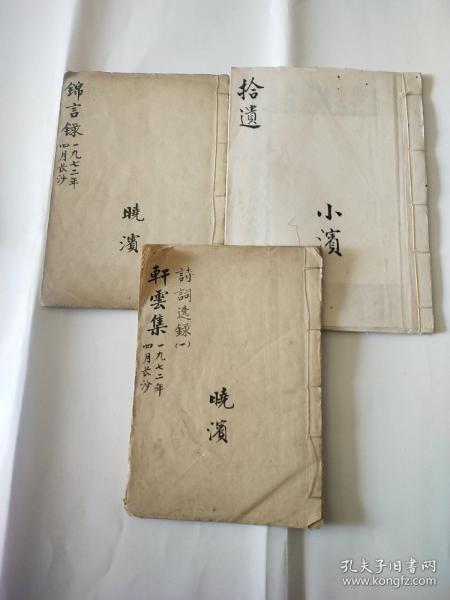 錦言錄
一九七二年
四月长沙
曉濱
拾遺
小濱
詩詞选錄
(一)
軒雲集
一九七二年
四月长沙
曉濱
孔夫子旧书网
www.kongfz.com